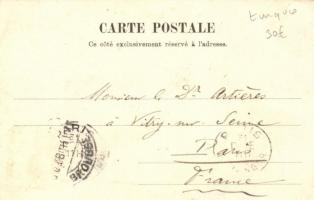 Turquie
30€
CARTE POSTALE
Ce côté exclusivement réservé à l'adresse.
Monsieur le Dr Artières
à Vitry-sur-Seine
Paris
France